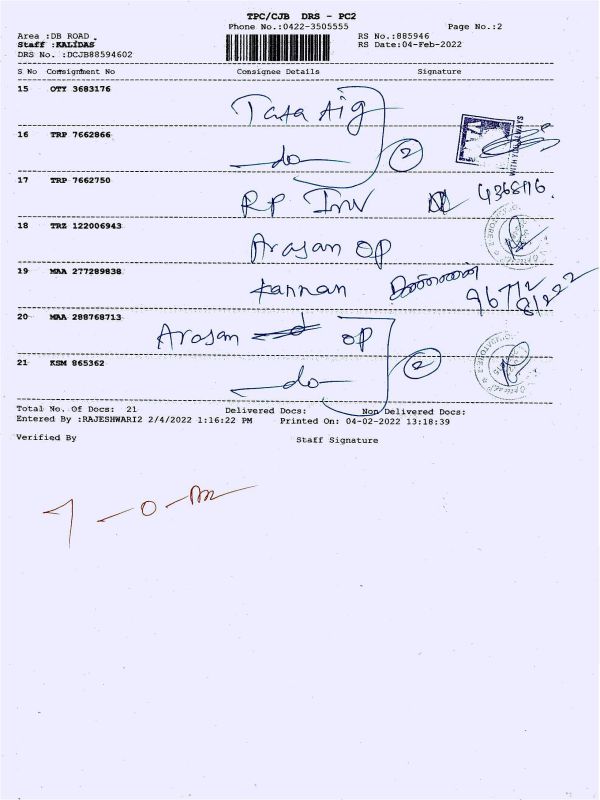 TPC/CJB DRS - PC2
Phone No.:0422-3505555 Page No.:2
Area :DB ROAD RS No.:885946
Staff :KALIDAS RS Date:04-Feb-2022
DRS No. :DCJB88594602
S No Consignment No Consignee Details Signature
15 OTY 3683176 Tata Aig
16 TRP 7662866 do 2
WITH YOU ALWAYS
17 TRP 7662750 RP Inv
18 TRZ 122006943 Arasan op
19 MAA 277289838 Kannan
20 MAA 288768713 Arasan op
21 KSM 865362 do 2
Total No. Of Docs: 21 Delivered Docs: Non Delivered Docs:
Entered By :RAJESHWARI2 2/4/2022 1:16:22 PM Printed On: 04-02-2022 13:18:39
Verified By Staff Signature